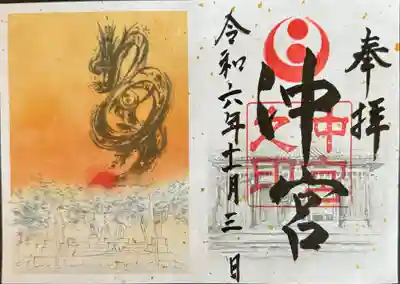 奉拝
沖宮
沖宮
之印
令和六年十一月三日